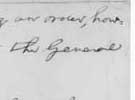 an order, how-
the General